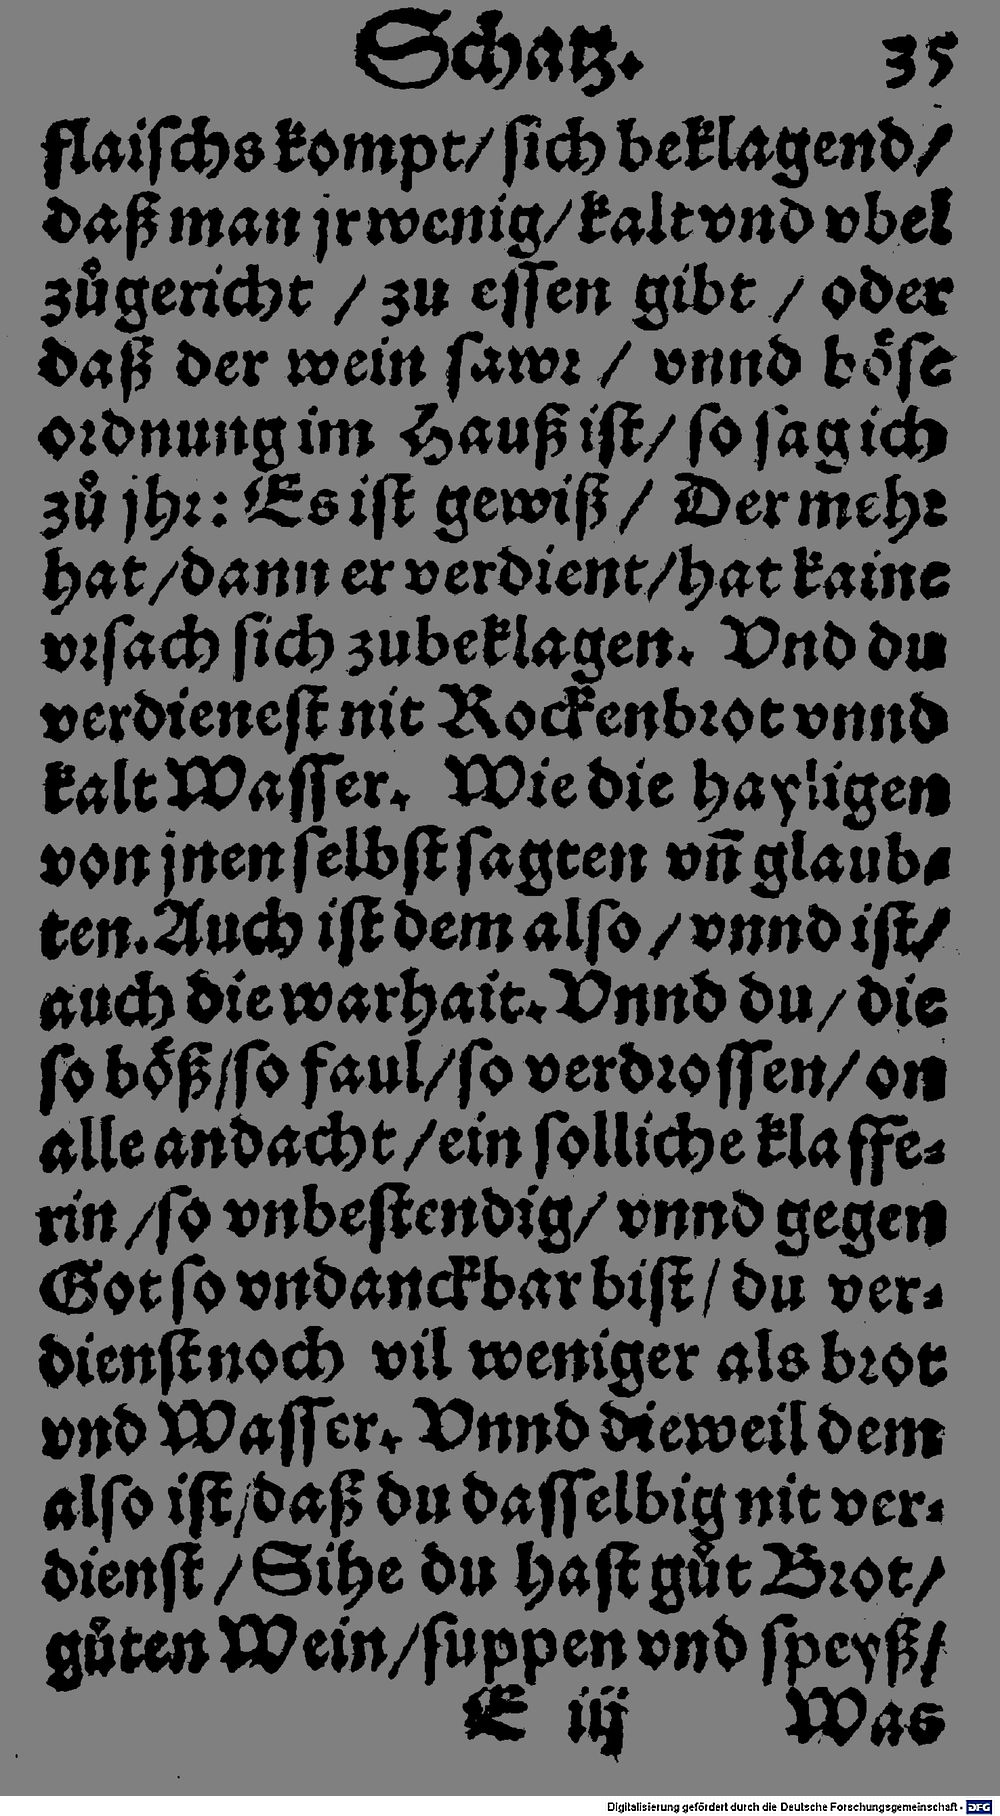 Schatz. 35
flaiſchs kompt/ ſich beklagend/
daß man jr wenig/ kalt vnd vbel
zůgericht / zu eſſen gibt / oder
daß der wein ſawꝛ / vnnd boͤſe
oꝛdnung im Hauß iſt/ ſo ſag ich
zů jhꝛ: Es iſt gewiß / Der mehꝛ
hat /dann er verdient/hat kaine
vꝛſach ſich zubeklagen. Vnd du
verdieneſt nit Rockenbꝛot vnnd
kalt Waſſer. Wie die hayligen
von jnen ſelbſt ſagten vn̄ glaub⸗
ten. Auch iſt dem alſo / vnnd iſt/
auch die warhait. Vnnd du/ die
ſo boͤß/ſo faul/ſo verdꝛoſſen/ on
alle andacht /ein ſolliche klaffe⸗
rin /ſo vnbeſtendig/ vnnd gegen
Got ſo vndanckbar biſt/ du ver⸗
dienſt noch vil weniger als bꝛot
vnd Waſſer. Vnnd dieweil dem
alſo iſt/daß du daſſelbig nit ver⸗
dienſt / Sihe du haſt gůt Bꝛot/
gůten Wein/ſuppen vnd ſpeyß/
E iij Was
Digitalisierung gefördert durch die Deutsche Forschungsgemeinschaft - DFG